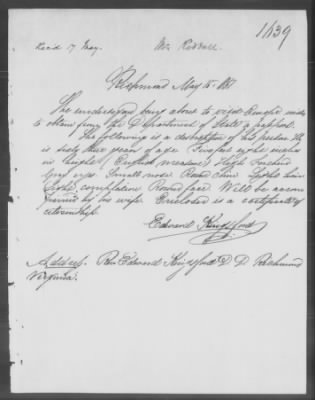 1639
Recd 17 May. Mr Riddall.
Richmond May 15. 1851
The undersigned being about to visit Europe wishes
to obtain from the Department of State a passport.
The following is a description of his person. He
is sixty three years of age. Five feet eight inches
in hight (English measure) High Forehead
Grey eyes Small nose. Round Chin. Light hair
Light complexion Round face. Will be accom
panied by his wife. Enclosed is a certificate of
citizenship.
Edward Kingsford
Address. Rev Edward Kingsford D D Richmond
Virginia.